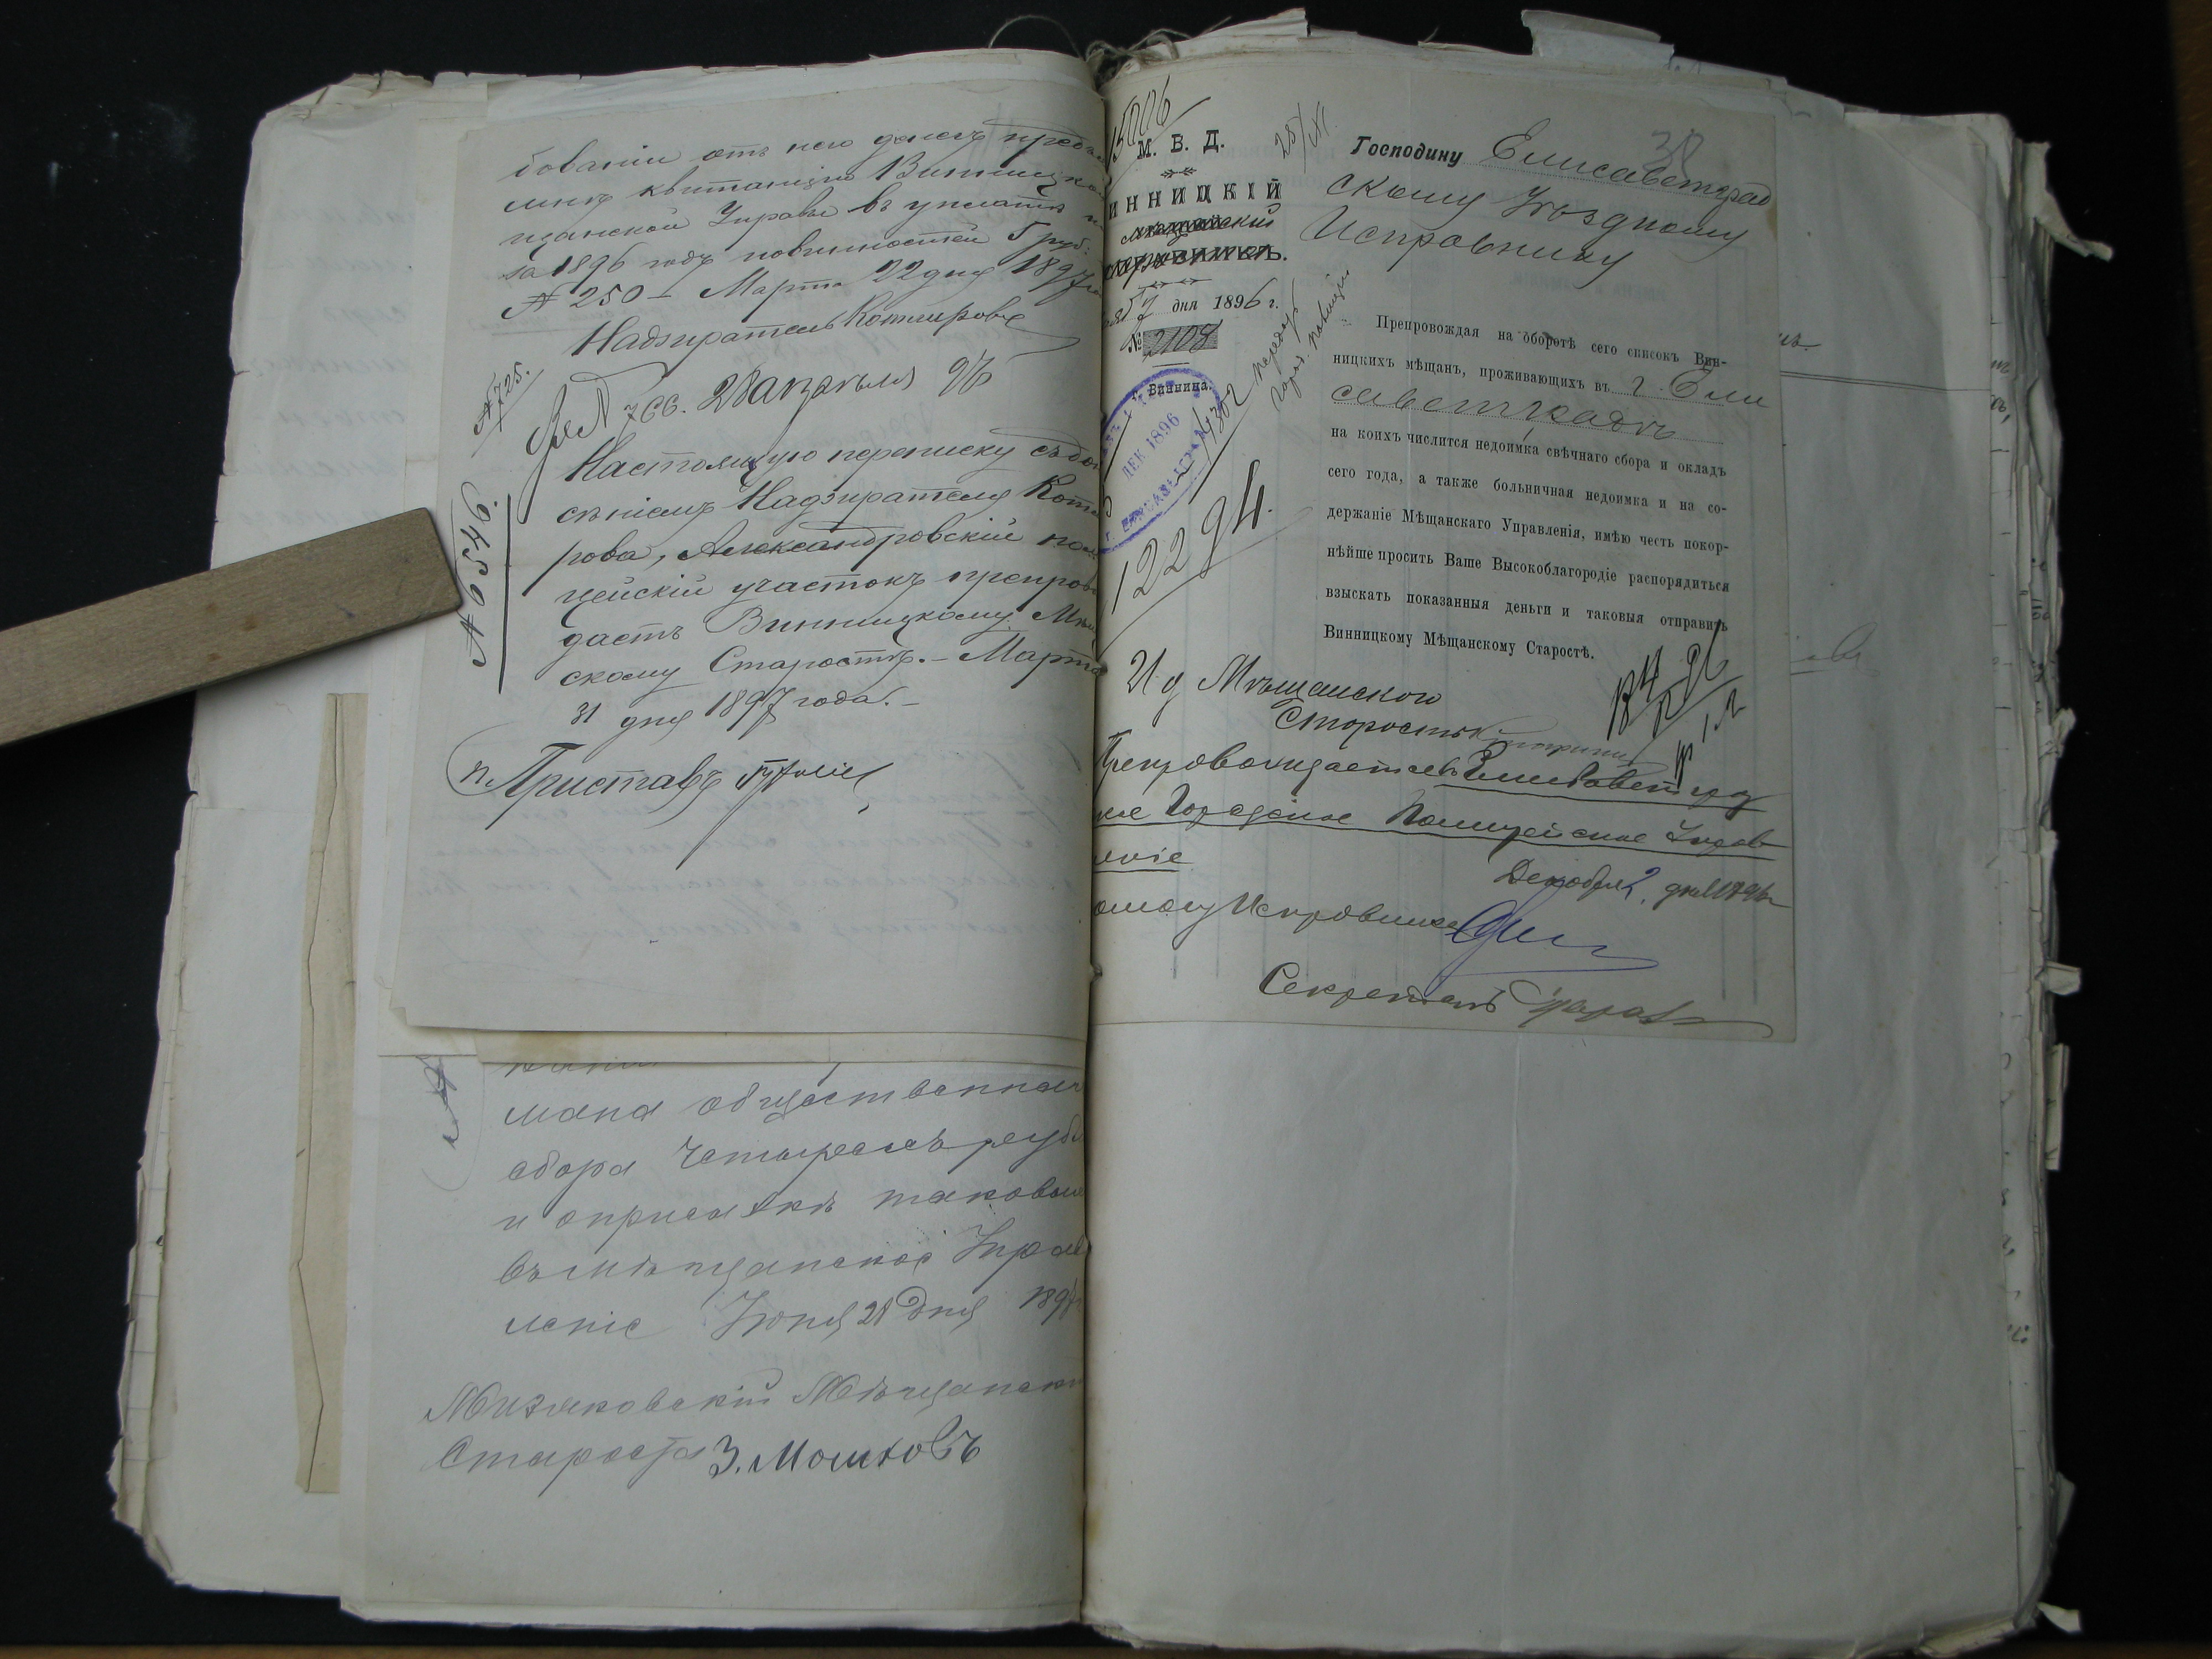 бованіи отъ него денегъ предъя
милъ квитанцію Винницкой
щанской Управы въ уплатѣ
за 1896 годъ повинностей 5 руб.
№ 250 – Марта 22 дня 1897
Надзиратель Котляровъ
№ 725.
766. 28 96
№ 6545
Настоящую переписку съ до
сеніемъ Надзирателя Котля
рова, Александровскій поли
цейскій участокъ препрово
даетъ Винницкому Мѣщ
скому Старостѣ. – Марта
31 дня 1897 года. –
п. Приставъ
мана общественнаго
сбора четырехъ рубл
и отсылкѣ таковыхъ
въ мѣщанское Управ
леніе Іюня 28 дня 189
Мизяковскій Мѣщанскій
Староста З. Мошковъ
15006
М. В. Д.
ИННИЦКІЙ
Мѣщанскій
дня 1896 г.
№ 2108
г. Винница.
ДЕК 1896
12294.
38
Господину Елисаветград
скому Уѣздному
Исправнику
Препровождая на оборотѣ сего списокъ Вин-
ницкихъ мѣщанъ, проживающихъ въ г. Ели
саветградѣ
на коихъ числится недоимка свѣчнаго сбора и окладъ
сего года, а также больничная недоимка и на со-
держаніе Мѣщанскаго Управленія, имѣю честь покор-
нѣйше просить Ваше Высокоблагородіе распорядиться
взыскать показанныя деньги и таковыя отправить
Винницкому Мѣщанскому Старостѣ.
И д Мѣщанскаго
Старосты
Препровождается въ Елисаветград
кое Городское Полицейское Управ
леніе
Декабря 2 дня 1896
Исправника
Секретарь